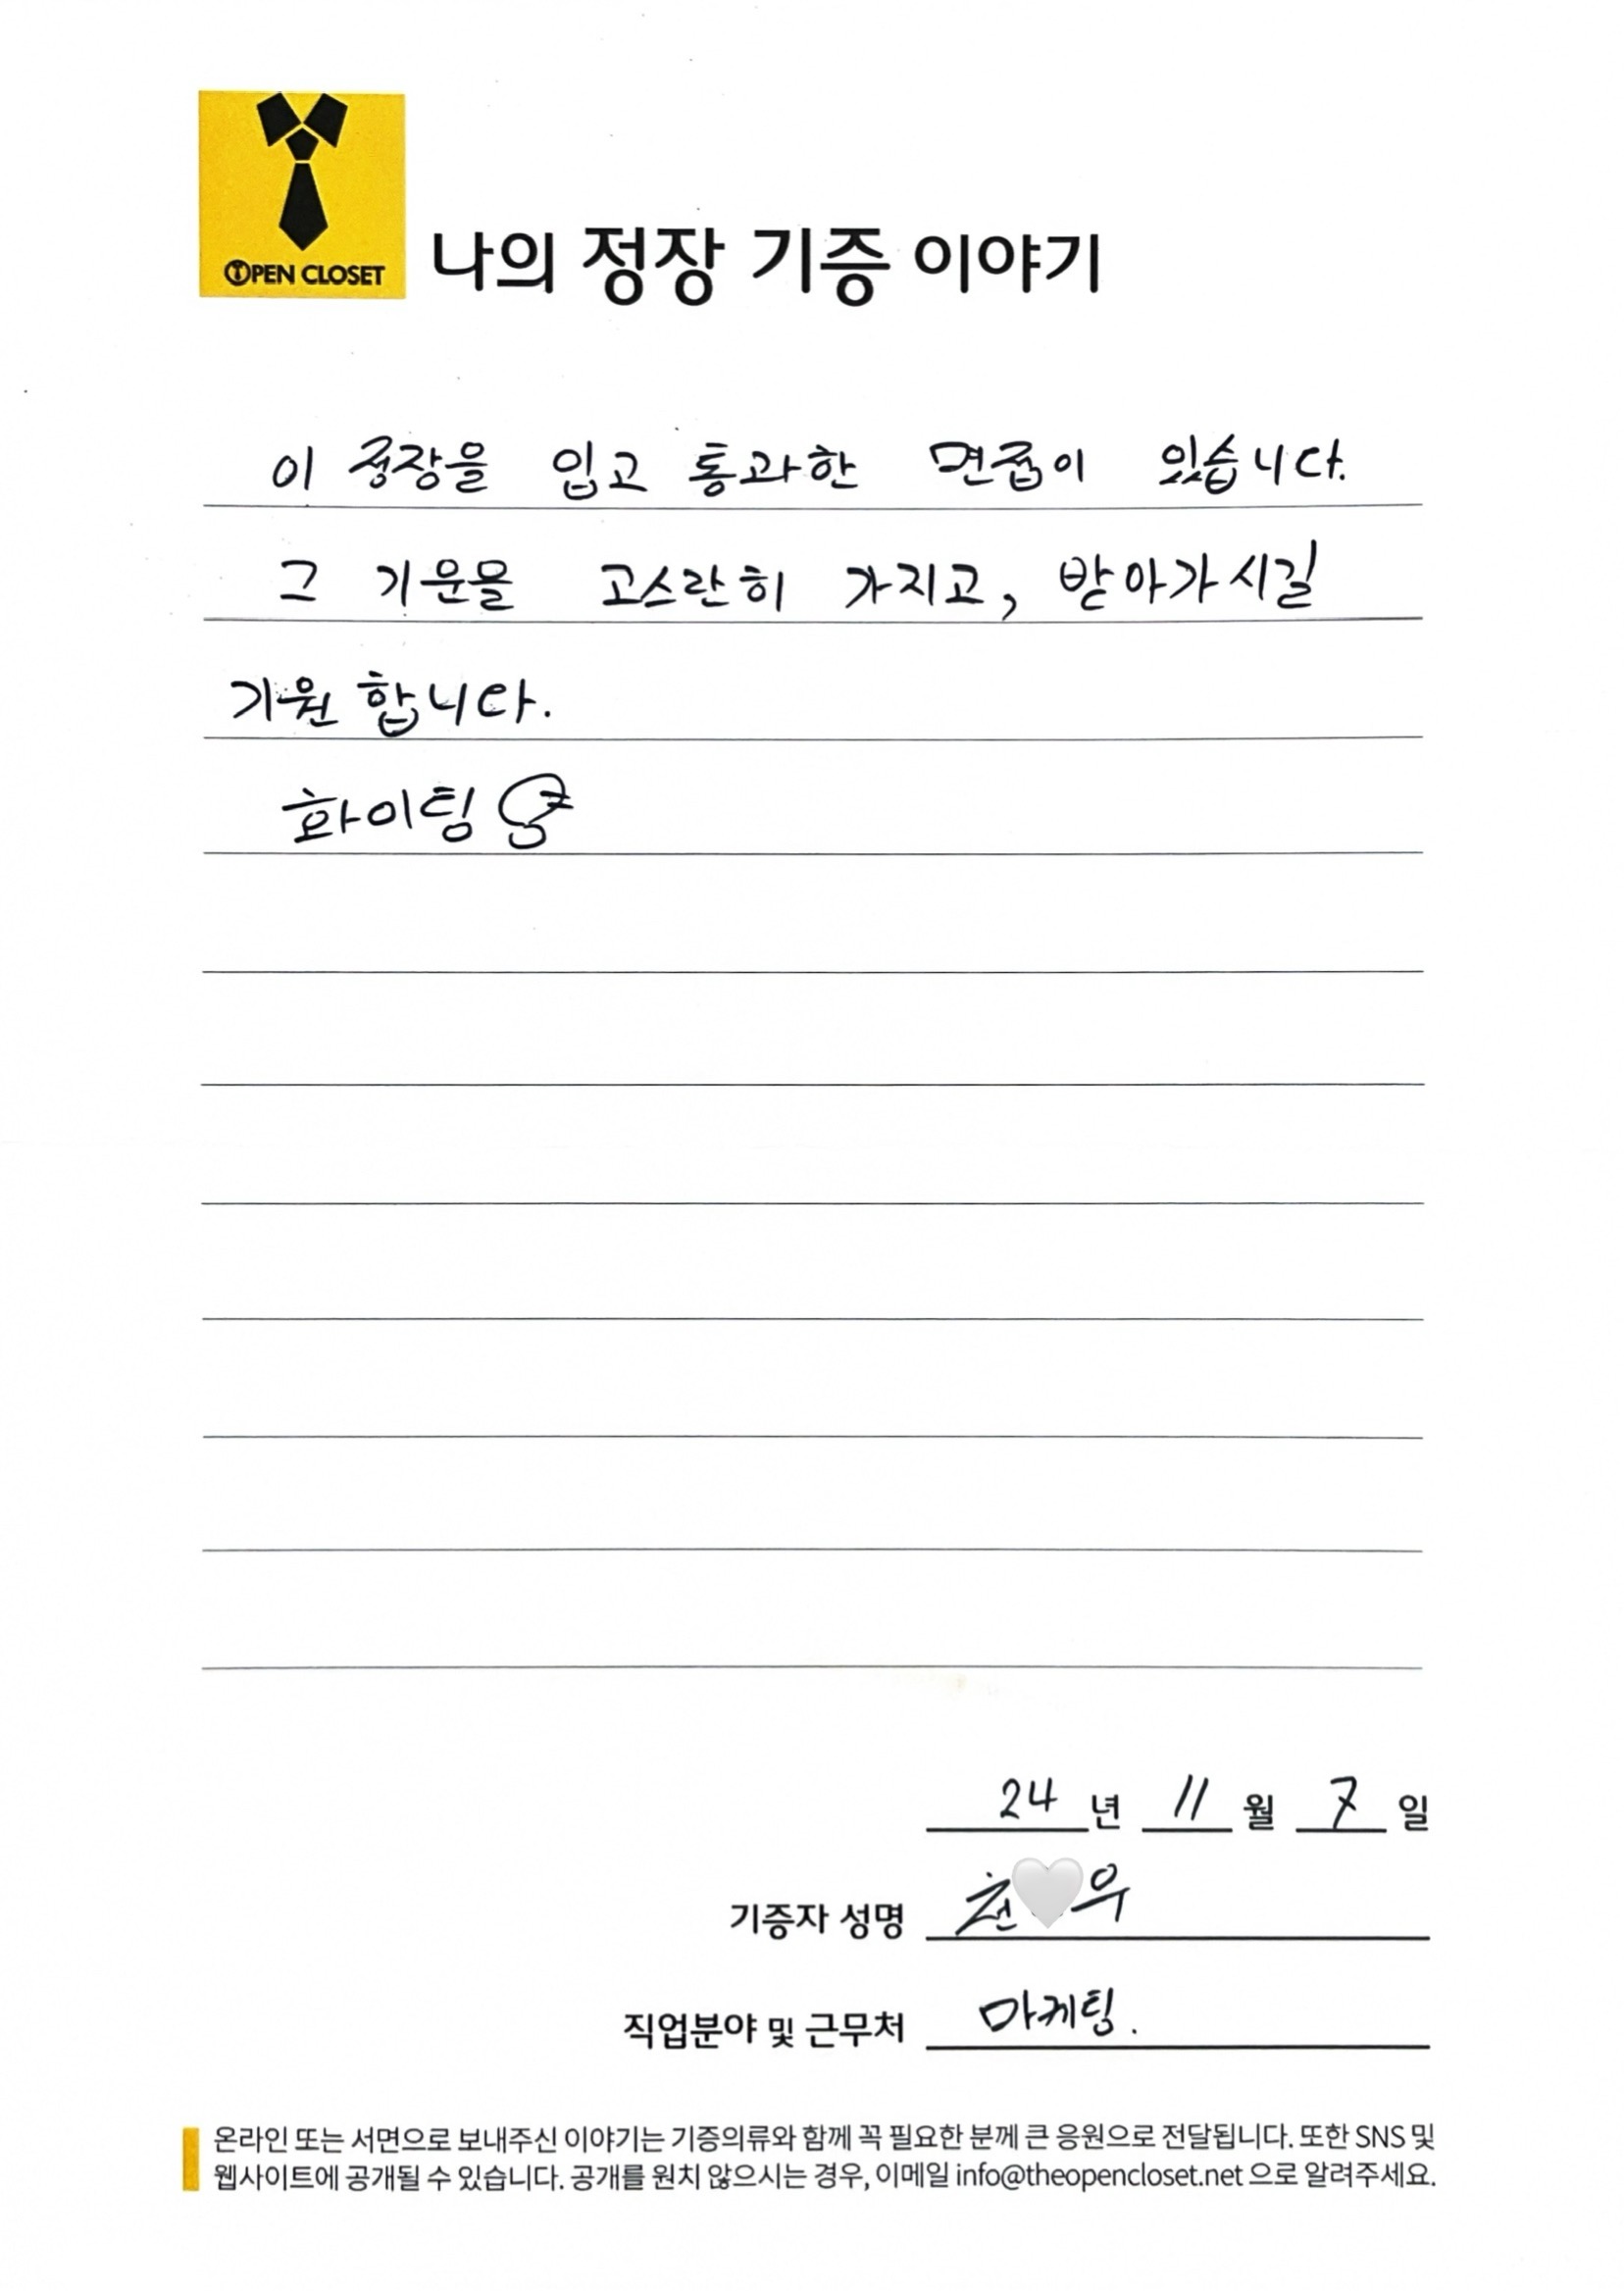 OPEN CLOSET
나의 정장 기증 이야기
이 정장을 입고 통과한 면접이 있습니다.
그 기운을 고스란히 가지고, 받아가시길
기원 합니다.
화이팅
24 년 11 월 7 일
기증자 성명 천 우
직업분야 및 근무처 마케팅.
온라인 또는 서면으로 보내주신 이야기는 기증의류와 함께 꼭 필요한 분께 큰 응원으로 전달됩니다. 또한 SNS 및
웹사이트에 공개될 수 있습니다. 공개를 원치 않으시는 경우, 이메일 info@theopencloset.net 으로 알려주세요.